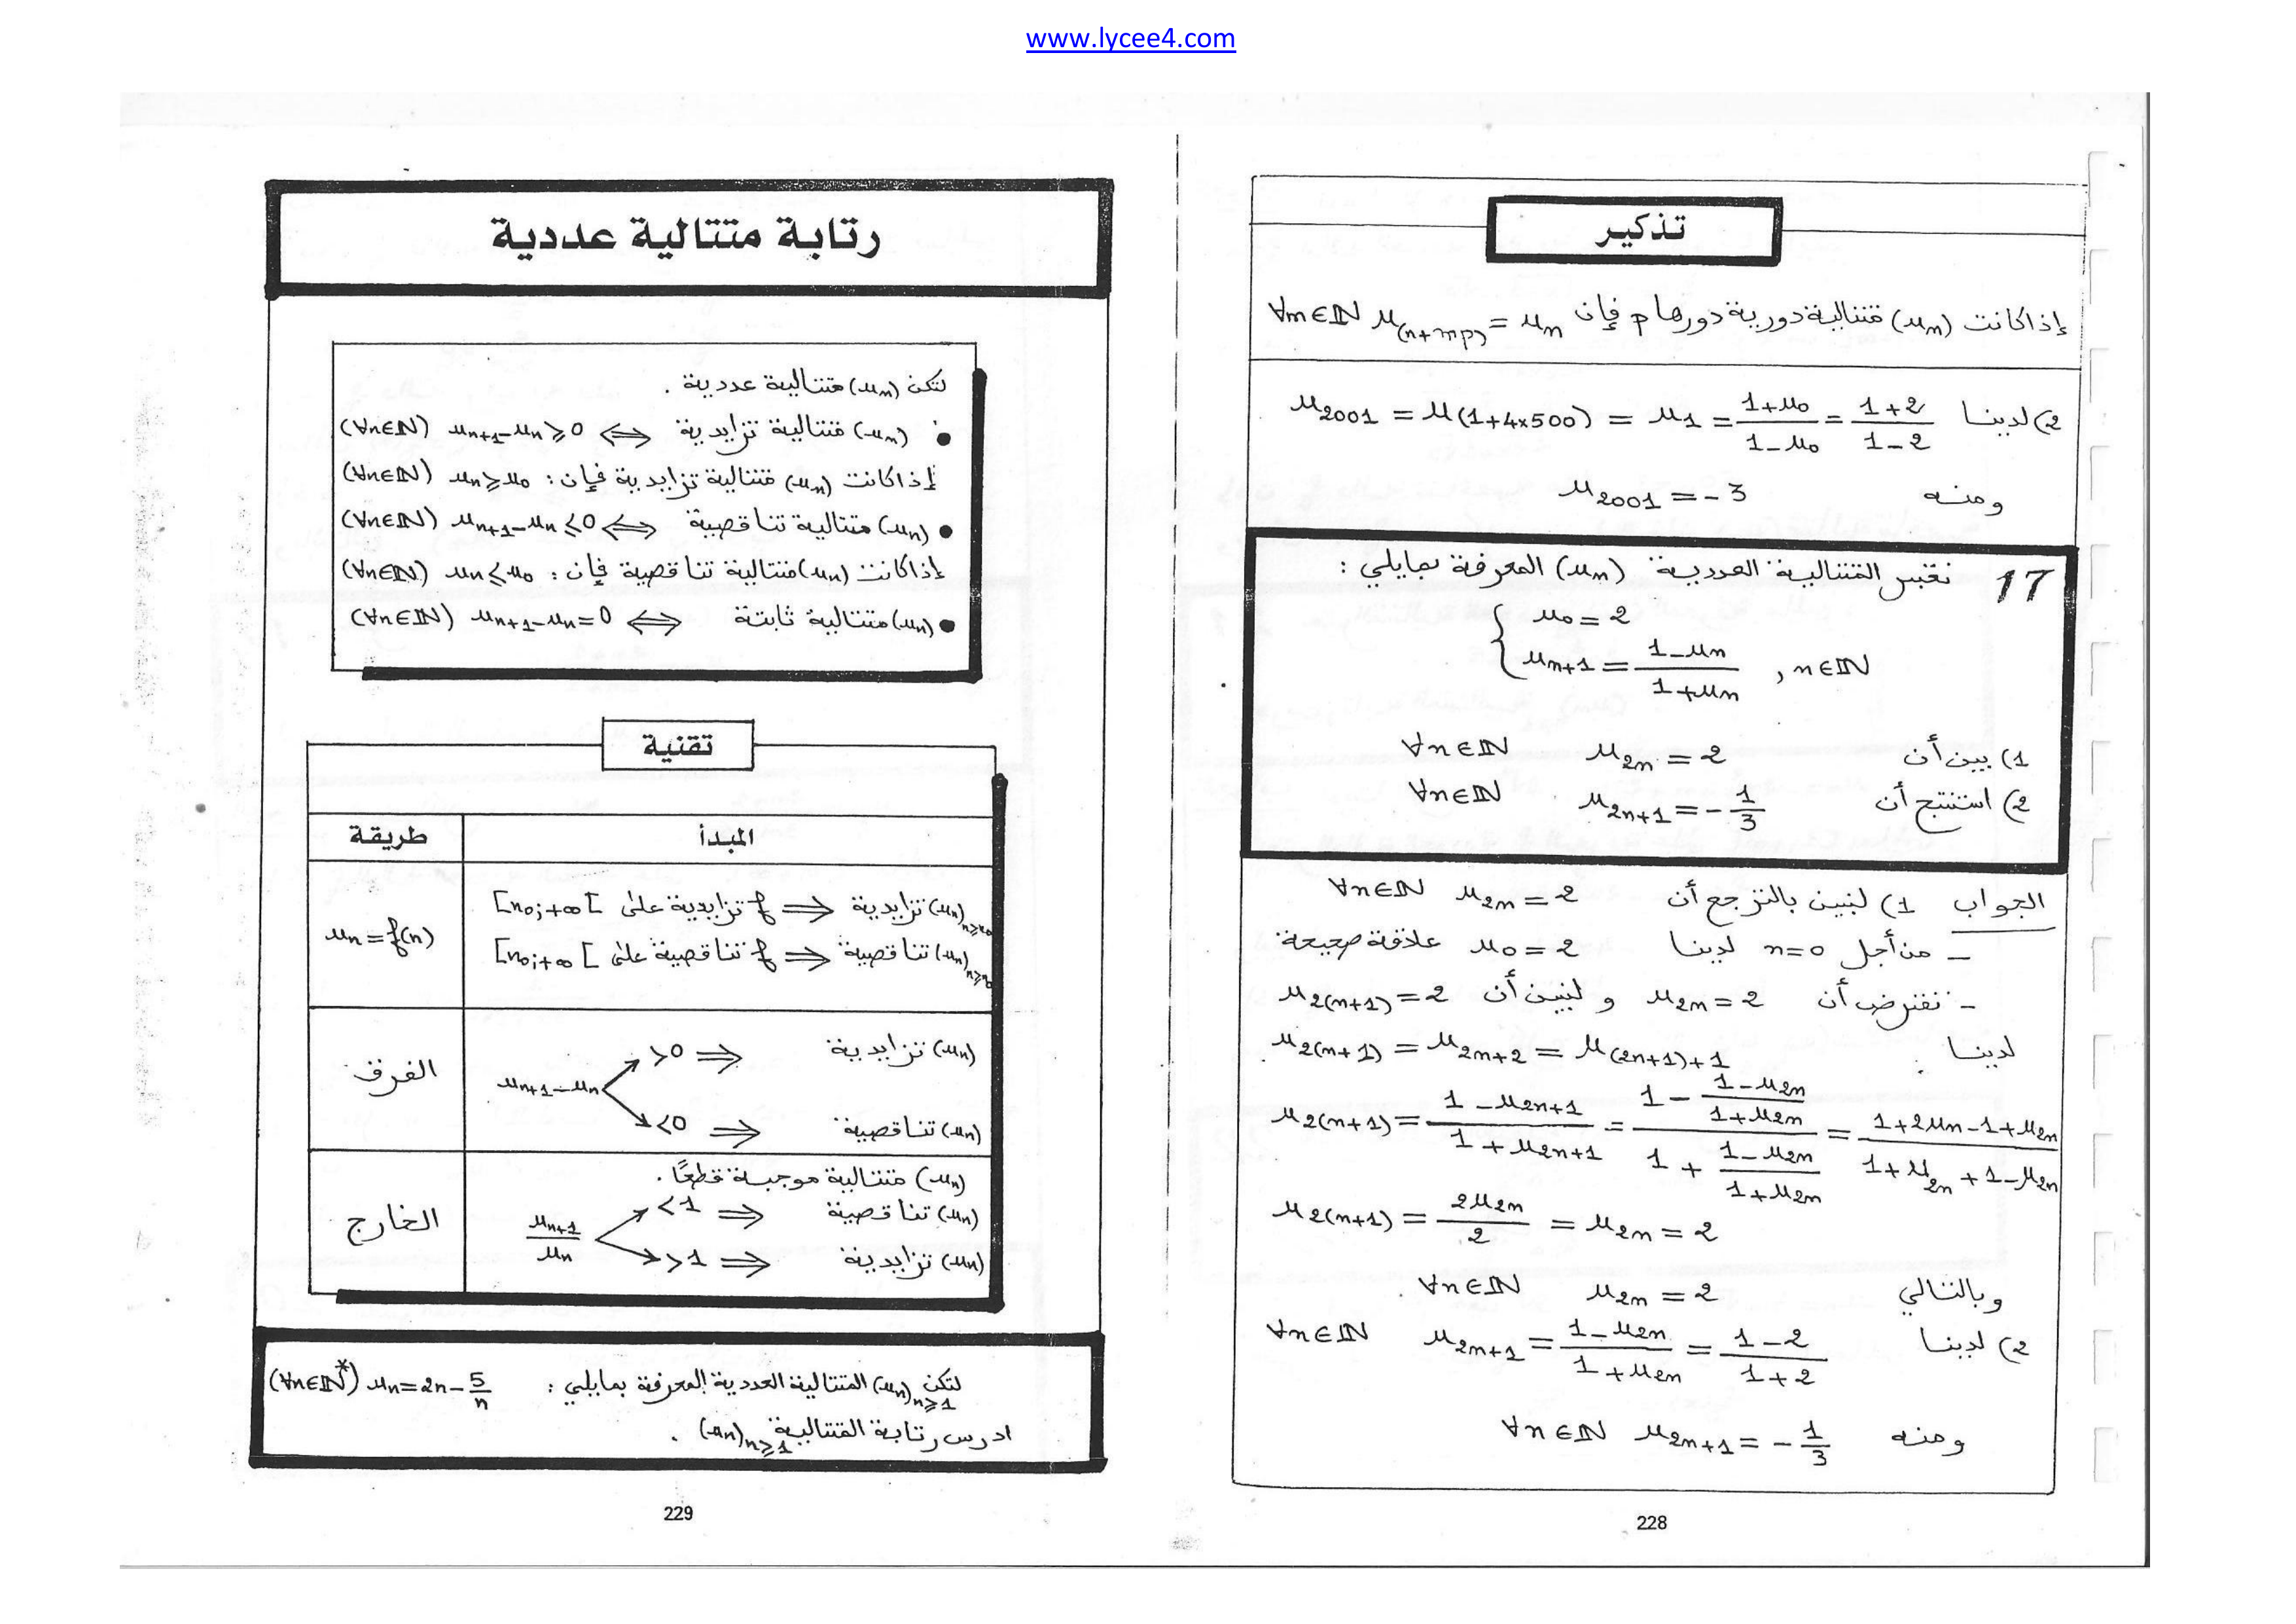 www.lycee4.com
تذكير
إذا كانت (u_n) متتالية دورية دورها p فإن u_(n+mp) = u_n ∀m∈ℕ
2) لدينا u_2001 = u(1+4×500) = u_1 = (1+u_0)/(1-u_0) = (1+2)/(1-2)
ومنه u_2001 = -3
17 نعتبر المتتالية العددية (u_n) المعرفة بمايلي :
{ u_0 = 2
u_{n+1} = (1-u_n)/(1+u_n) , n∈ℕ
1) بين أن u_2n = 2 ∀n∈ℕ
2) استنتج أن u_{2n+1} = -1/3 ∀n∈ℕ
الجواب 1) لنبين بالترجع أن u_2n = 2 ∀n∈ℕ
- من أجل n=0 لدينا u_0 = 2 علاقة صحيحة
- نفترض أن u_2n = 2 و لنبين أن u_2(n+1) = 2
لدينا u_2(n+1) = u_{2n+2} = u_(2n+1)+1
u_2(n+1) = (1-u_{2n+1})/(1+u_{2n+1}) = (1 - (1-u_2n)/(1+u_2n))/(1 + (1-u_2n)/(1+u_2n)) = (1+2u_n-1+u_2n)/(1+u_2n+1-u_2n)
u_2(n+1) = 2u_2n/2 = u_2n = 2
وبالتالي u_2n = 2 ∀n∈ℕ .
2) لدينا u_{2n+1} = (1-u_2n)/(1+u_2n) = (1-2)/(1+2) ∀n∈ℕ
ومنه u_{2n+1} = -1/3 ∀n∈ℕ
228
رتابة متتالية عددية
لتكن (u_n) متتالية عددية .
• (u_n) متتالية تزايدية ⟺ u_{n+1}-u_n ⩾ 0 (∀n∈ℕ)
إذا كانت (u_n) متتالية تزايدية فإن : u_n ⩾ u_0 (∀n∈ℕ)
• (u_n) متتالية تناقصية ⟺ u_{n+1}-u_n ⩽ 0 (∀n∈ℕ)
إذا كانت (u_n) متتالية تناقصية فإن : u_n ⩽ u_0 (∀n∈ℕ)
• (u_n) متتالية ثابتة ⟺ u_{n+1}-u_n = 0 (∀n∈ℕ)
تقنية
المبدأ طريقة
(u_n)_{n⩾n_0} تزايدية ⟹ f تزايدية على [n_0;+∞[
u_n = f(n)
(u_n)_{n⩾n_0} تناقصية ⟹ f تناقصية على [n_0;+∞[
(u_n) تزايدية ⟹ >0
u_{n+1}-u_n الفرق
(u_n) تناقصية ⟹ <0
(u_n) متتالية موجبة قطعًا .
(u_n) تناقصية ⟹ <1
u_{n+1}/u_n الخارج
(u_n) تزايدية ⟹ >1
لتكن (u_n)_{n⩾1} المتتالية العددية المعرفة بمايلي : u_n = 2n - 5/n (∀n∈ℕ*)
ادرس رتابة المتتالية (u_n)_{n⩾1} .
229